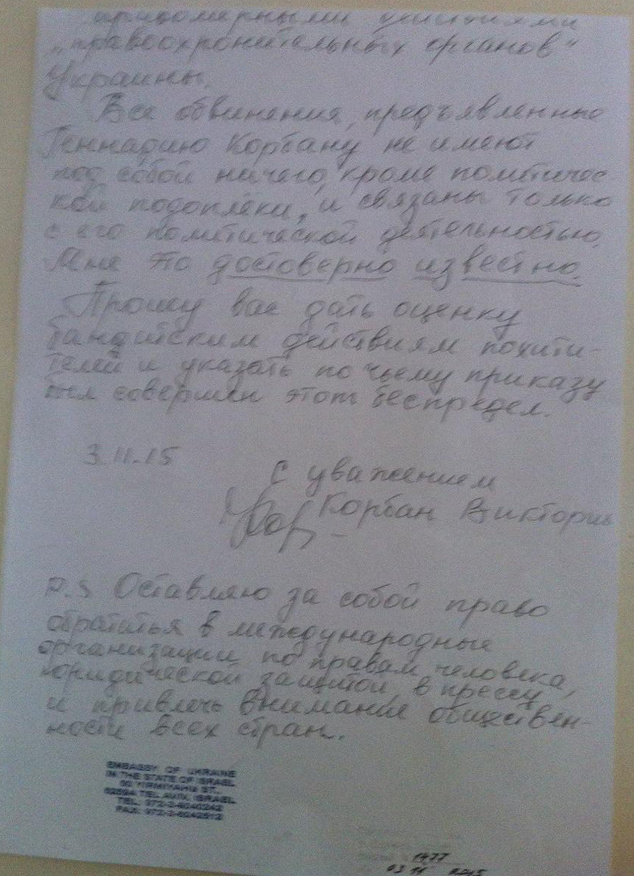 "правоохронительных органов"
Украины.
Все обвинения, предъявленные
Геннадию Корбану не имеют
под собой ничего, кроме политичес
кой подоплёки, и связаны только
с его политической деятельностью,
Мне это достоверно известно.
Прошу вас дать оценку
бандитским действиям похити-
телей и указать по чьему приказу
был совершен этот беспредел.
3.11.15
С уважением
Корбан Виктория
P.S Оставляю за собой право
обратиться в международные
организации по правам человека,
юридической защитой, в прессу
и привлечь внимание обществен-
ности всех стран.
EMBASSY OF UKRAINE
IN THE STATE OF ISRAEL
50 YIRMIYAHU ST.,
62594 TEL AVIV, ISRAEL
TEL: 972-3-6040242
FAX: 972-3-6042512
1477
03 11 2015